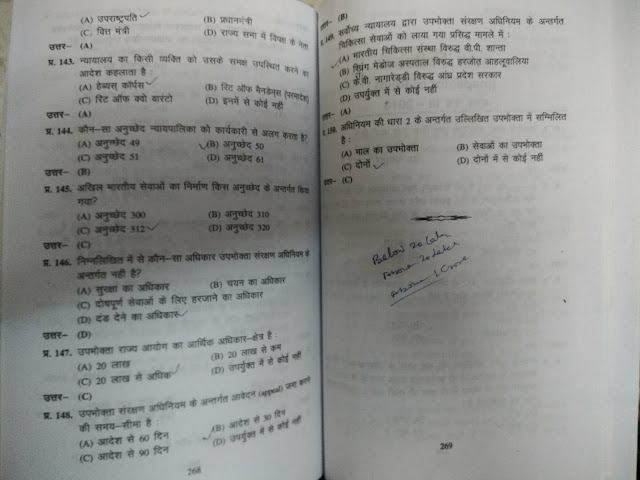 (A) उपराष्ट्रपति (B) प्रधानमंत्री
(C) वित्त मंत्री (D) राज्य सभा में विपक्ष के नेता
उत्तर- (A)
प्र. 143. न्यायालय का किसी व्यक्ति को उसके समक्ष उपस्थित करने का
आदेश कहलाता है :
(A) हेब्यस् कॉर्पस (B) रिट ऑफ मैनडेमॅस (परमादेश)
(C) रिट ऑफ क्वो वारंटो (D) इनमें से कोई नहीं
उत्तर- (A)
प्र. 144. कौन-सा अनुच्छेद न्यायपालिका को कार्यकारी से अलग करता है?
(A) अनुच्छेद 49 (B) अनुच्छेद 50
(C) अनुच्छेद 51 (D) अनुच्छेद 61
उत्तर- (B)
प्र. 145. अखिल भारतीय सेवाओं का निर्माण किस अनुच्छेद के अन्तर्गत किया
गया?
(A) अनुच्छेद 300 (B) अनुच्छेद 310
(C) अनुच्छेद 312 (D) अनुच्छेद 320
उत्तर- (C)
प्र. 146. निम्नलिखित में से कौन-सा अधिकार उपभोक्ता संरक्षण अधिनियम के
अन्तर्गत नहीं है?
(A) सुरक्षा का अधिकार (B) चयन का अधिकार
(C) दोषपूर्ण सेवाओं के लिए हरजाने का अधिकार
(D) दंड देने का अधिकार
उत्तर- (D)
प्र. 147. उपभोक्ता राज्य आयोग का आर्थिक अधिकार-क्षेत्र है :
(A) 20 लाख (B) 20 लाख से कम
(C) 20 लाख से अधिक (D) उपर्युक्त में से कोई नहीं
उत्तर- (C)
प्र. 148. उपभोक्ता संरक्षण अधिनियम के अन्तर्गत आवेदन (appeal) जमा करने
की समय-सीमा है :
(A) आदेश से 60 दिन (B) आदेश से 30 दिन
(C) आदेश से 90 दिन (D) उपर्युक्त में से कोई नहीं
268
उत्तर- (B)
प्र. 149. सर्वोच्च न्यायालय द्वारा उपभोक्ता संरक्षण अधिनियम के अन्तर्गत
चिकित्सा सेवाओं को लाया गया प्रसिद्ध मामले में :
(A) भारतीय चिकित्सा संस्था विरुद्ध वी.पी. शान्ता
(B) स्प्रिंग मेडोज अस्पताल विरुद्ध हरजोत आहलूवालिया
(C) के.वी. नागारेड्डी विरुद्ध आंध्र प्रदेश सरकार
(D) उपर्युक्त में से कोई नहीं
उत्तर- (A)
प्र. 150. अधिनियम की धारा 2 के अन्तर्गत उल्लिखित उपभोक्ता में सम्मिलित
है :
(A) माल का उपभोक्ता (B) सेवाओं का उपभोक्ता
(C) दोनों (D) दोनों में से कोई नहीं
उत्तर- (C)
Below 20 Lakh
Above 20 Lakh
Above 1 Crore
269